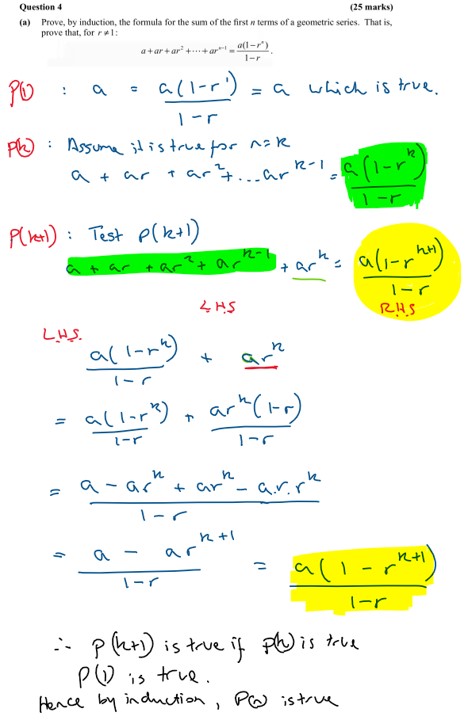 Question 4 (25 marks)
(a) Prove, by induction, the formula for the sum of the first n terms of a geometric series. That is,
prove that, for r ≠ 1:
a + ar + ar² + ⋯ + arⁿ⁻¹ = a(1−rⁿ)/(1−r).
P(1) : a = a(1−r¹)/(1−r) = a which is true.
P(k) : Assume it is true for n=k
a + ar + ar² + ... ar^(k−1) = a(1−r^k)/(1−r)
P(k+1) : Test P(k+1)
a + ar + ar² + ar^(k−1) + ar^k = a(1−r^(k+1))/(1−r)
L.H.S R.H.S
L.H.S.
a(1−r^k)/(1−r) + ar^k
= a(1−r^k)/(1−r) + ar^k(1−r)/(1−r)
= (a − ar^k + ar^k − a.r.r^k)/(1−r)
= (a − ar^(k+1))/(1−r) = a(1 − r^(k+1))/(1−r)
∴ P(k+1) is true if P(k) is true
P(1) is true.
Hence by induction, P(n) is true